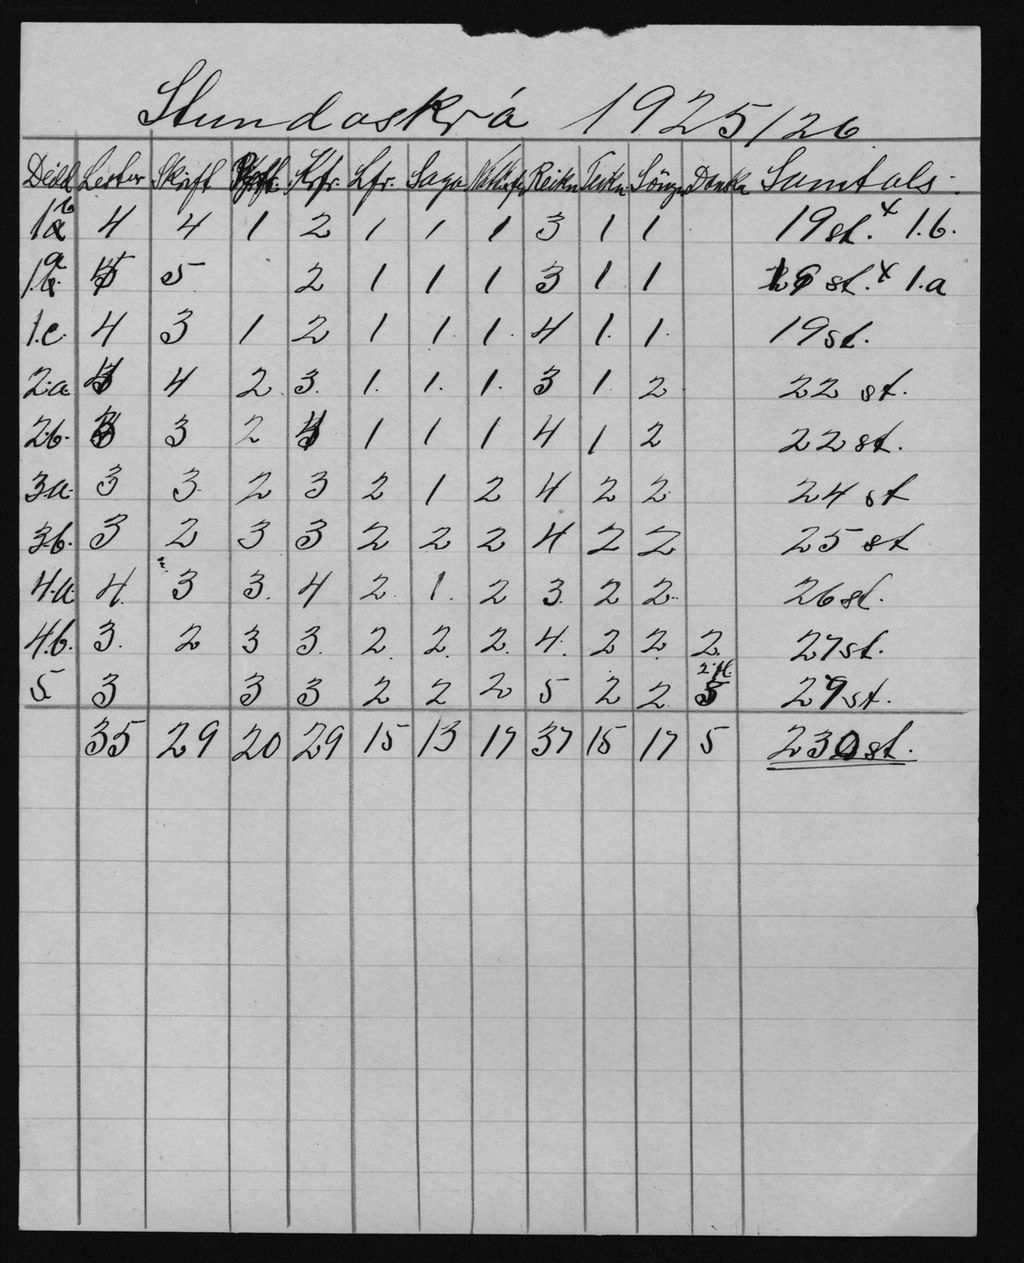 Stundaskrá 1925/26
Deild Lestur Skrift Kfr. Lfr. Saga Reikn Teikn Söngr Danska Samtals.
1b 4 4 1 2 1 1 1 3 1 1 19 st. x 1.b.
1a 5 2 1 1 1 3 1 1 st. x 1.a
1.c. 4 3 1 2 1 1 1 4 1 1 19 st.
2.a 4 2 3 1 1 1 3 1 2 22 st.
2.b. 3 2 1 1 1 4 1 2 22 st.
3a. 3 3 2 3 2 1 2 4 2 2 24 st
3b. 3 2 3 3 2 2 2 4 2 2 25 st
4.a 4 3 3 4 2 1 2 3 2 2 26 st.
4.b. 3 2 3 3 2 2 2 4 2 2 2 27 st.
5 3 3 3 2 2 2 5 2 2 29 st.
35 29 20 29 15 13 17 37 15 17 5 230 st.